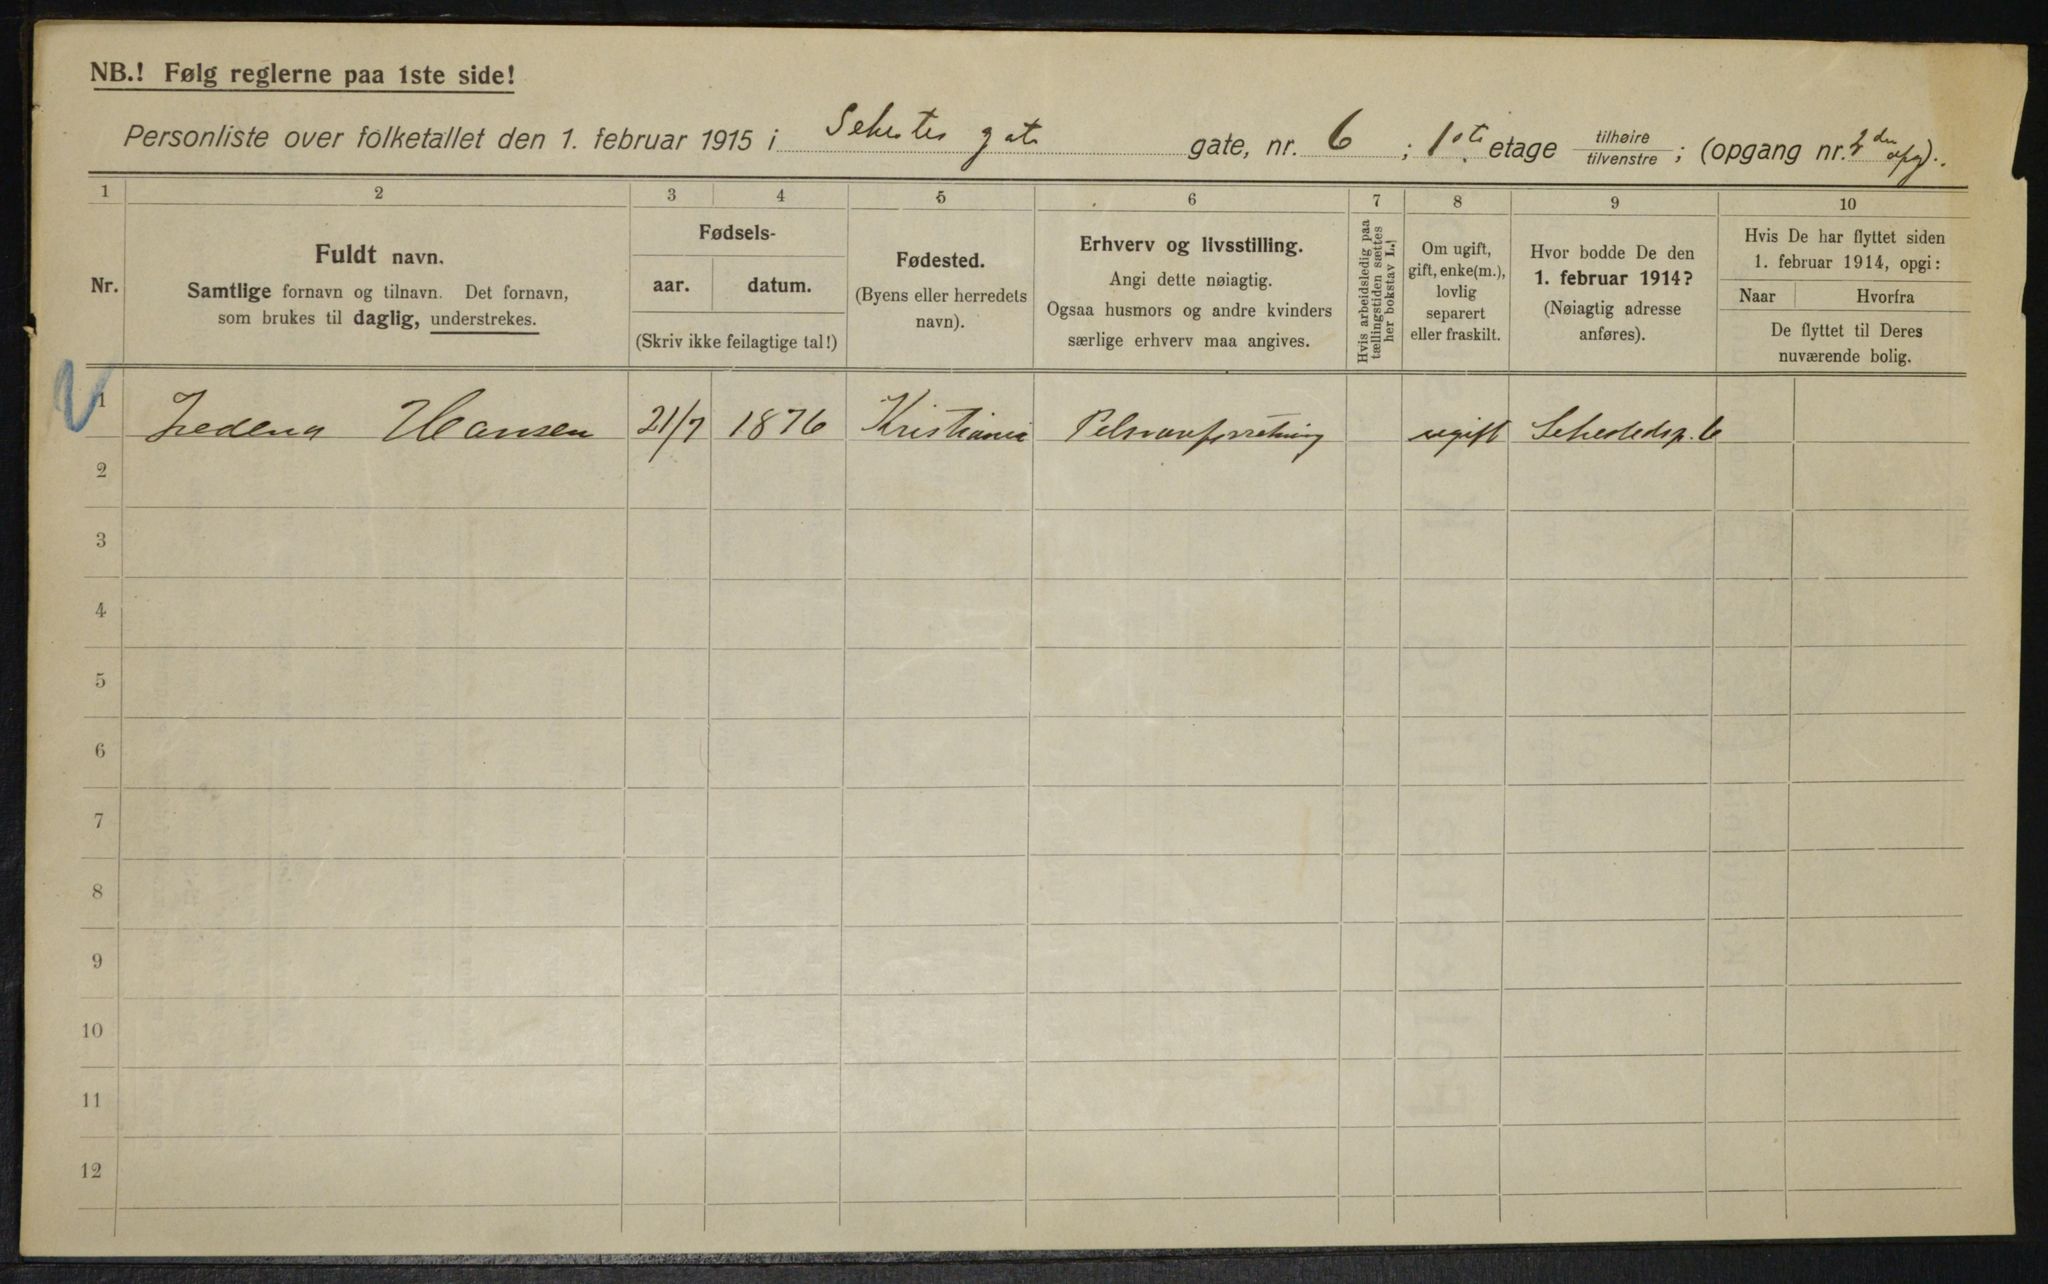 NB.! Følg reglerne paa 1ste side!
Personliste over folketallet den 1. februar 1915 i Sehestes gate gate, nr. 6 ; 1ste etage tilhøire / tilvenstre ; (opgang nr. 2den opg).
1 2 3 4 5 6 7 8 9 10
Nr.
Fuldt navn.
Samtlige fornavn og tilnavn. Det fornavn,
som brukes til daglig, understrekes.
Fødsels-
aar. datum.
(Skriv ikke feilagtige tal!)
Fødested.
(Byens eller herredets
navn).
Erhverv og livsstilling.
Angi dette nøiagtig.
Ogsaa husmors og andre kvinders
særlige erhverv maa angives.
Hvis arbeidsledig paa
tællingstiden sættes
her bokstav L.)
Om ugift,
gift, enke(m.),
lovlig
separert
eller fraskilt.
Hvor bodde De den
1. februar 1914?
(Nøiagtig adresse
anføres).
Hvis De har flyttet siden
1. februar 1914, opgi:
Naar Hvorfra
De flyttet til Deres
nuværende bolig.
1 Hansen 21/7 1876 Kristiania Pelsvareforretning ugift Sehestedsg. 6
2
3
4
5
6
7
8
9
10
11
12